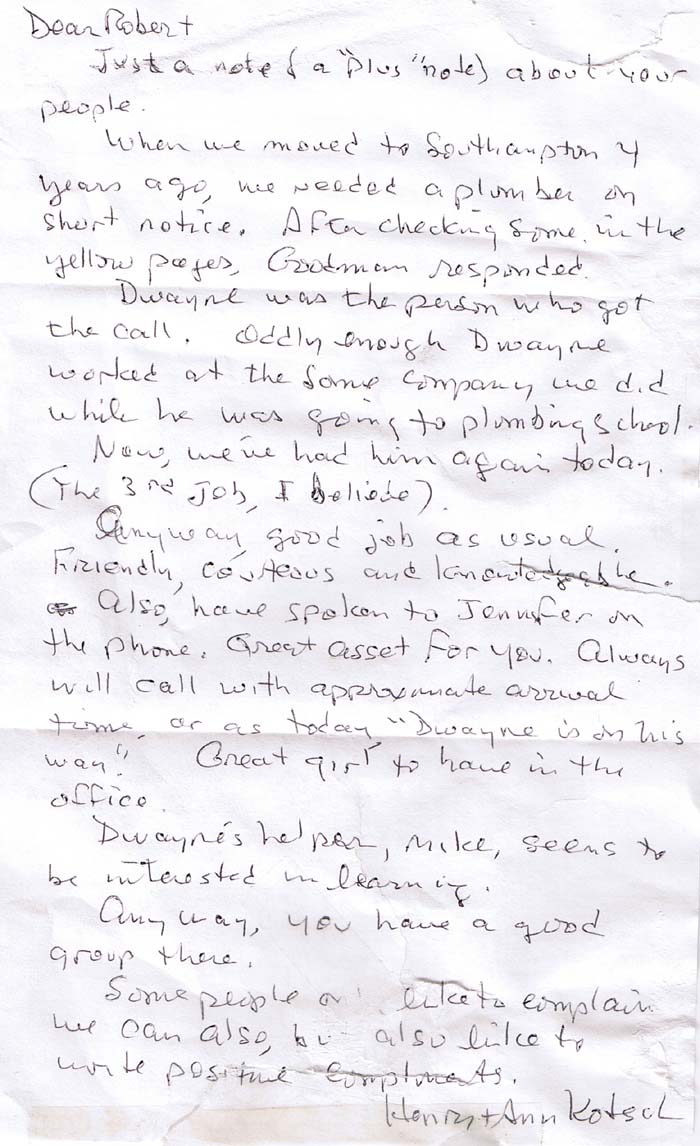 Dear Robert
Just a note (a "plus" note) about your
people.
When we moved to Southampton 4
years ago, we needed a plumber on
short notice. After checking some in the
yellow pages, Goodman responded.
Dwayne was the person who got
the call. Oddly enough Dwayne
worked at the same company we did
while he was going to plumbing school.
Now, we've had him again today.
(The 3rd job, I believe).
Anyway, good job as usual.
Friendly, courteous and knowledgeable.
Also, have spoken to Jennifer on
the phone. Great asset for you. Always
will call with approximate arrival
time, or as today "Dwayne is on his
way". Great girl to have in the
office.
Dwayne's helper, Mike, seems to
be interested in learning.
Anyway, you have a good
group there.
Some people like to complain
we can also, but also like to
write positive compliments.
Henry + Ann Kotsch